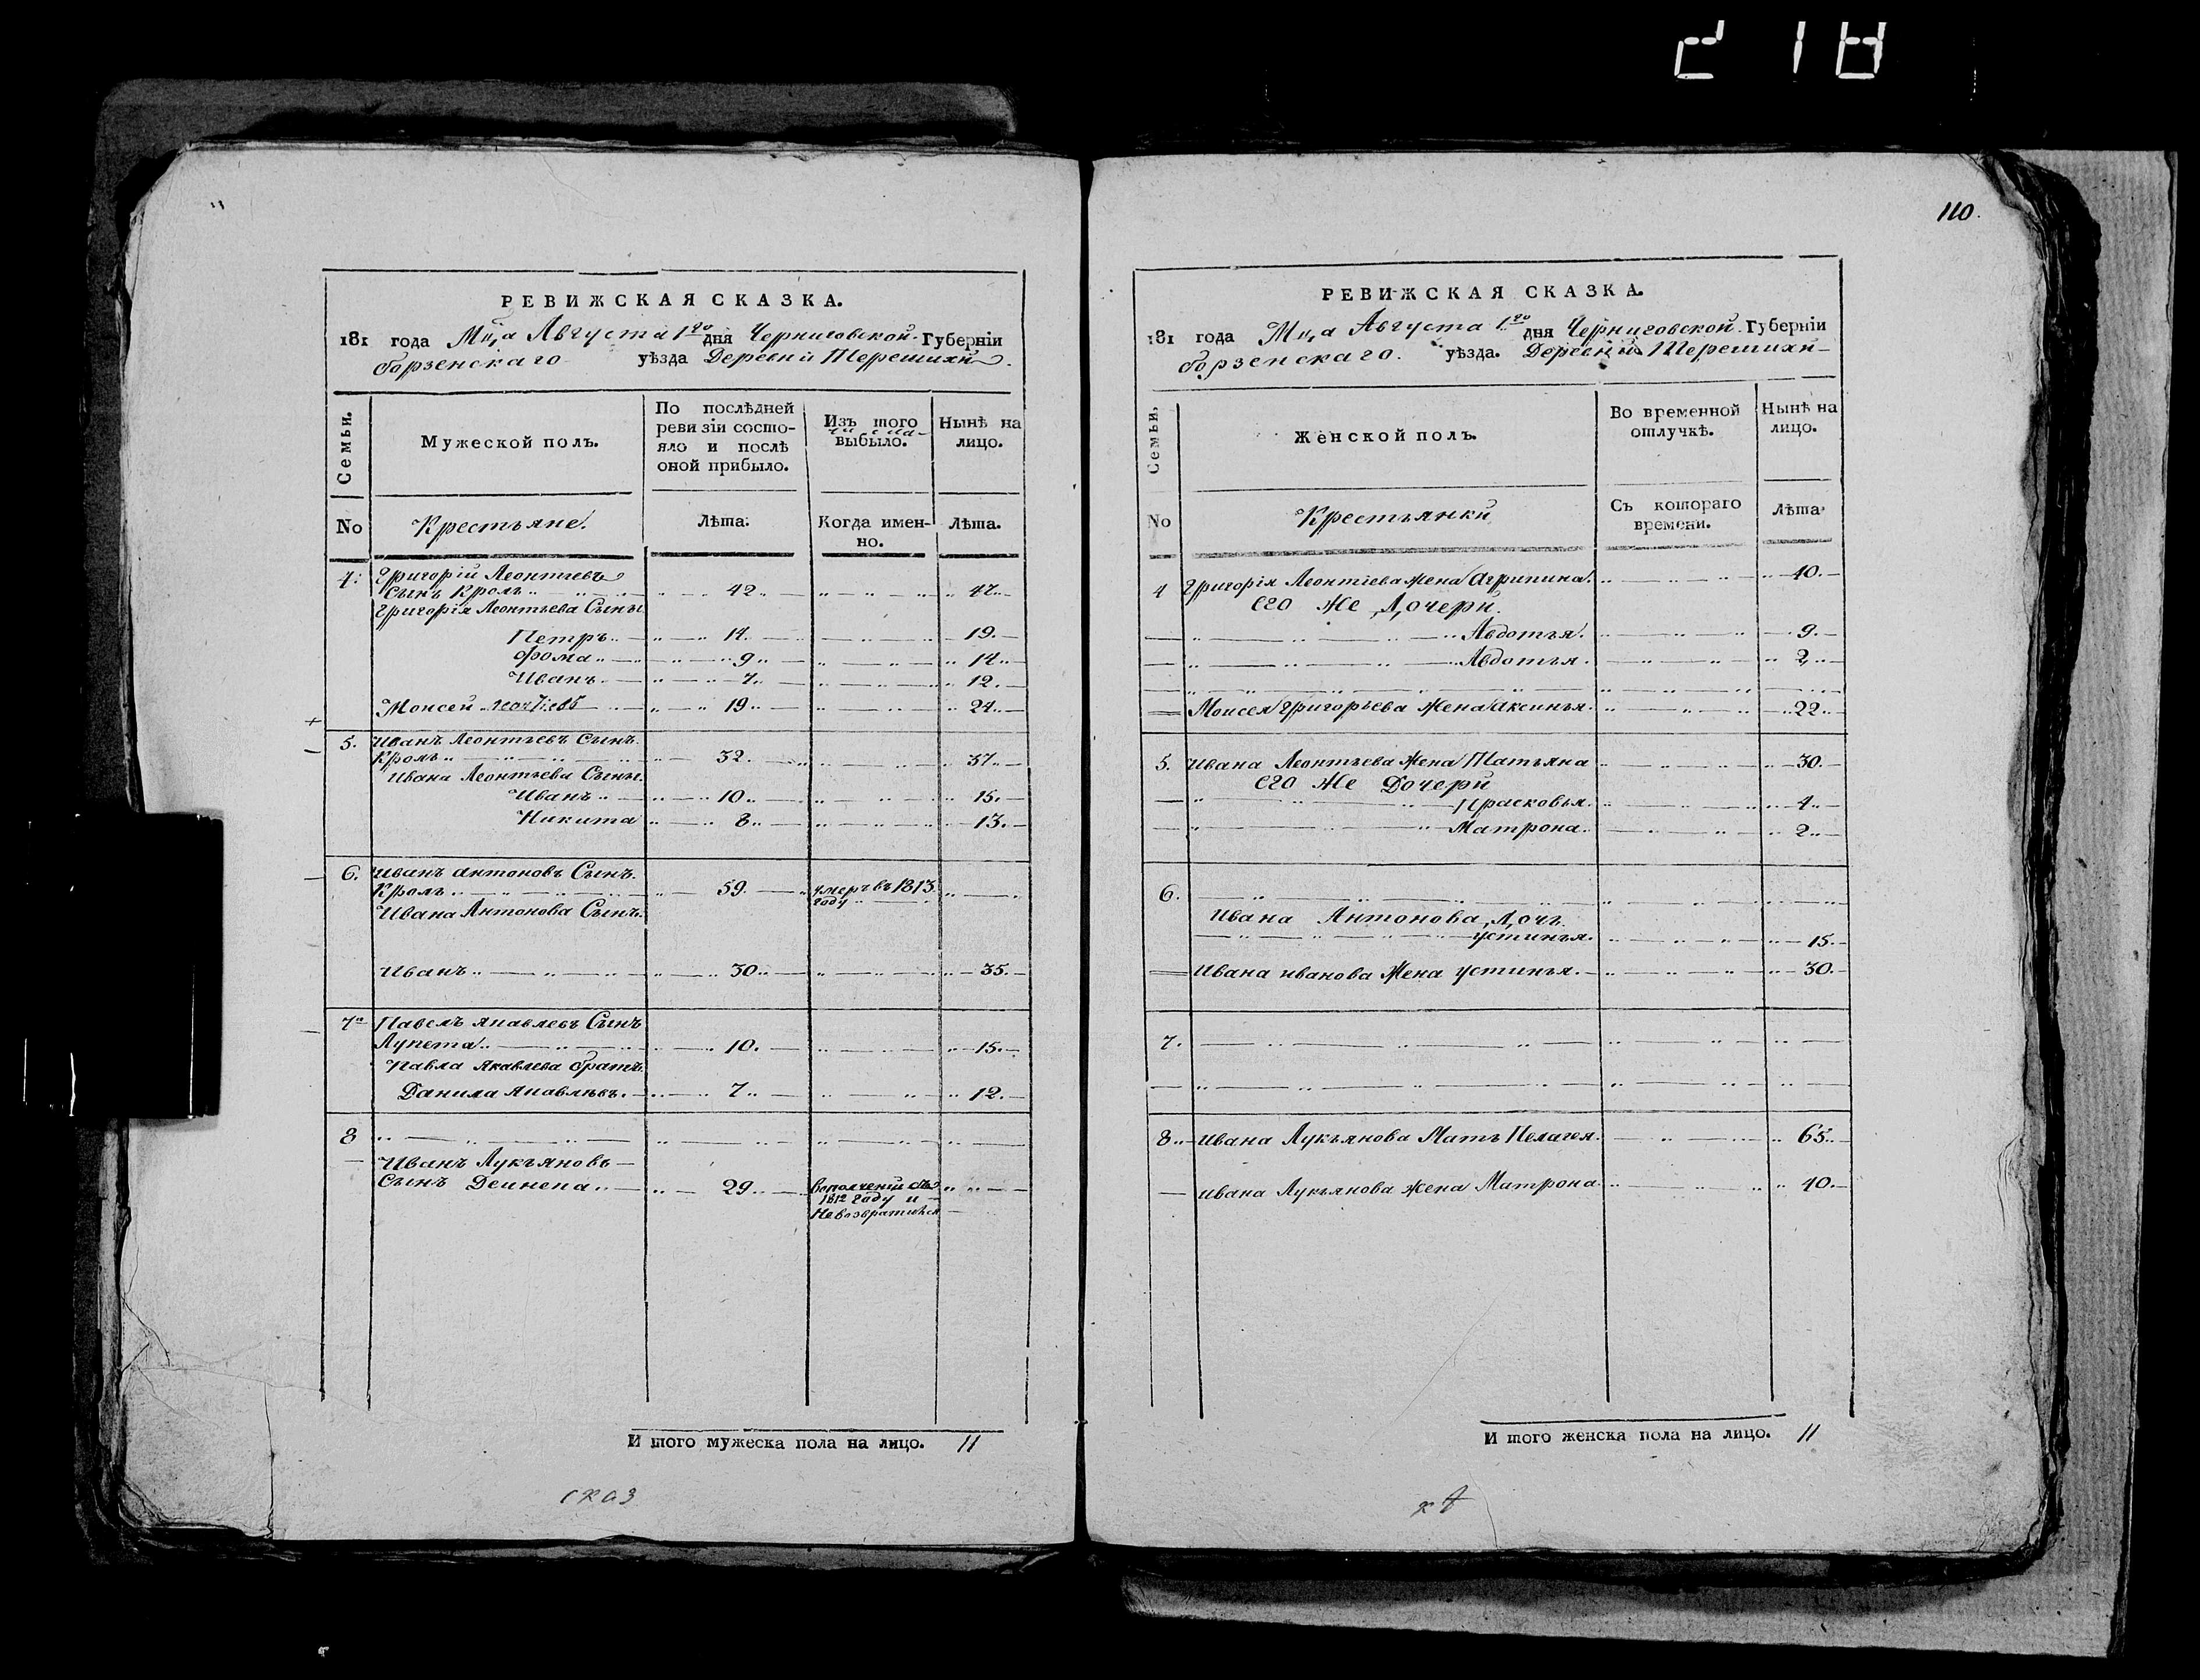 218
РЕВИЖСКАЯ СКАЗКА.
181 года Мц,а Августа 1го дня Черниговской Губернїи
борзенскаго уѣзда Деревни Терешихи.
Семьи.
Мужеской полъ.
По послѣдней
ревизїи состо-
яло и послѣ
оной прибыло.
Изъ того
выбыло.
Нынѣ на
лицо.
No
Крестьяне.
Лѣта.
Когда имен-
но.
Лѣта.
4. Григорій Леонтиевъ
Сынъ Кроль 42 47
Григорія Леонтьева Сыны
Петръ 14 19
Фома 9 14
Иванъ 7 12
Моисей 19 24
5. Иванъ Леонтьевъ Сынъ
Кроль 32 37
Ивана Леонтьева Сыны
Иванъ 10 15
Никита 8 13
6. Иванъ Антоновъ Сынъ
Кроль 59 умеръ въ 1813
году
Ивана Антонова Сынъ
Иванъ 30 35
7 Павелъ Яковлевъ Сынъ
10 15
Павла Яковлева братъ
Данила Яковлевъ 7 12
8
Иванъ Лукъяновъ
Сынъ 29
1812 году и
Невозвратился
И того мужеска пола на лицо. 11
сказ
110.
РЕВИЖСКАЯ СКАЗКА.
181 года Мц,а Августа 1го дня Черниговской Губернїи
борзенскаго уѣзда. Деревни Терешихи
Семьи.
Женской полъ.
Во временной
отлучкѣ.
Нынѣ на
лицо.
No
Крестьянки
Съ котораго
времени.
Лѣта
4 Григорія Леонтіева жена Агрипина 40
Его же Дочери
Авдотья 9
Авдотья 2
Моисея Григорьева жена Аксинья 22
5. Ивана Леонтьева жена Татьяна 30
Его же Дочери
Прасковья 4
Матрона 2
6.
Ивана Антонова Дочь
Устинья 15
Ивана Иванова Жена Устинья 30
7.
8 Ивана Лукъянова Мать Пелагея 65
Ивана Лукъянова жена Матрона 40
И того женска пола на лицо. 11